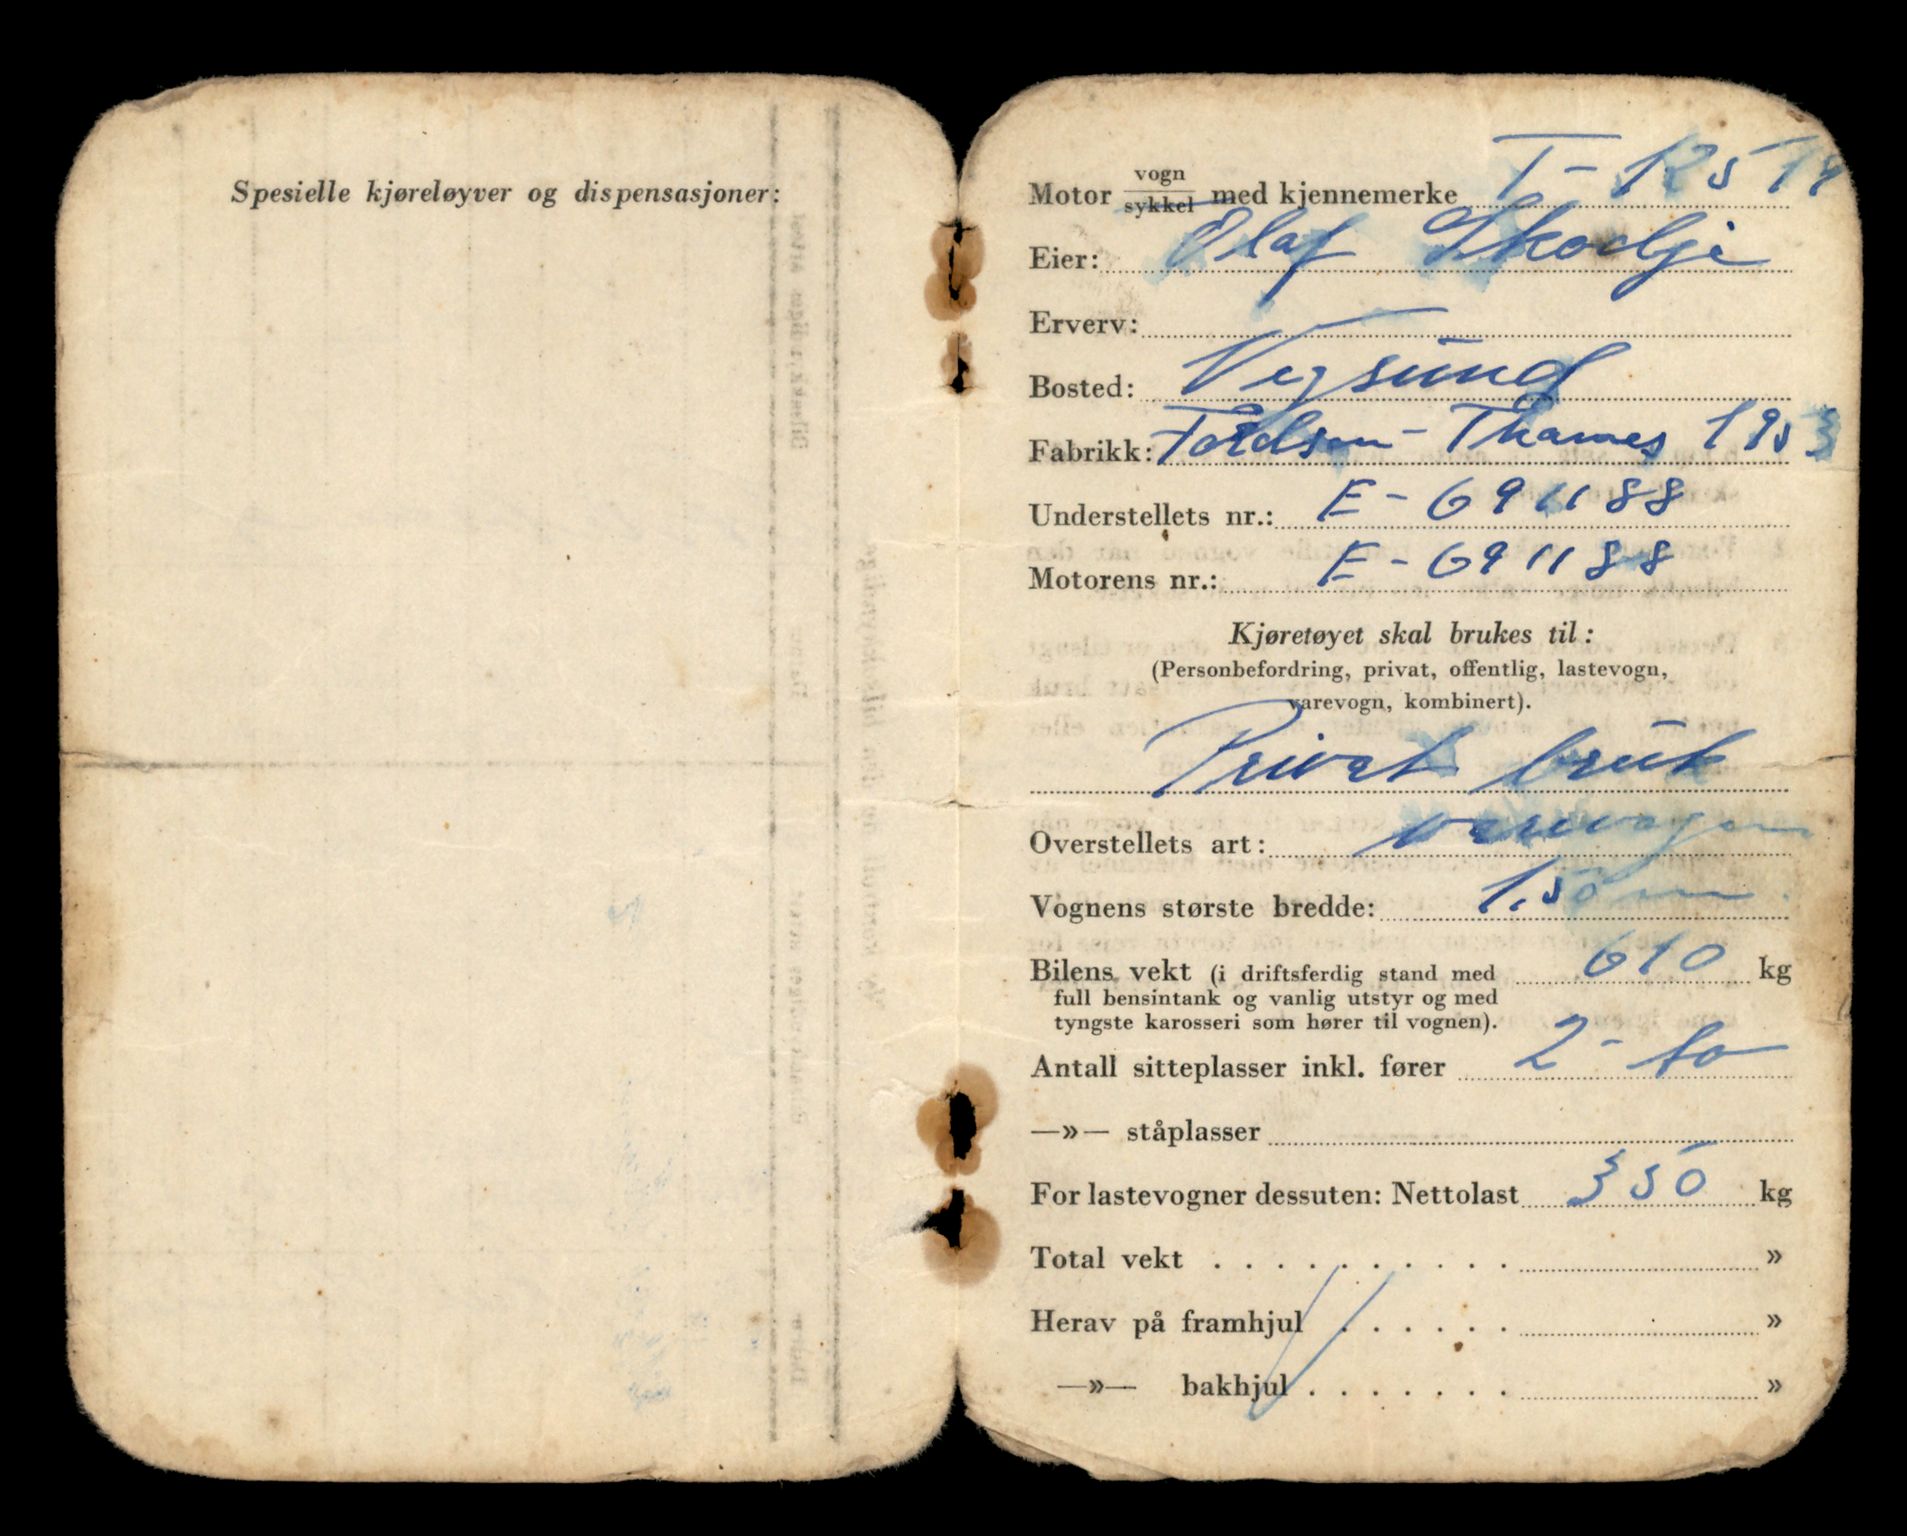 Spesielle kjøreløyver og dispensasjoner:
Motor vogn / sykkel med kjennemerke T-12519
Eier: Olaf Skodje
Erverv:
Bosted: Vegsund
Fabrikk: Fordson-Thames 1953
Understellets nr.: E-691188
Motorens nr.: E-691188
Kjøretøyet skal brukes til:
(Personbefordring, privat, offentlig, lastevogn,
varevogn, kombinert).
Privat bruk
Overstellets art: varevogn
Vognens største bredde: 1.50 m.
Bilens vekt (i driftsferdig stand med 610 kg
full bensintank og vanlig utstyr og med
tyngste karosseri som hører til vognen).
Antall sitteplasser inkl. fører 2 - to
—»— ståplasser
For lastevogner dessuten: Nettolast 350 kg
Total vekt . . . . . . . . . . »
Herav på framhjul . . . . . . »
—»— bakhjul . . . . . . . »